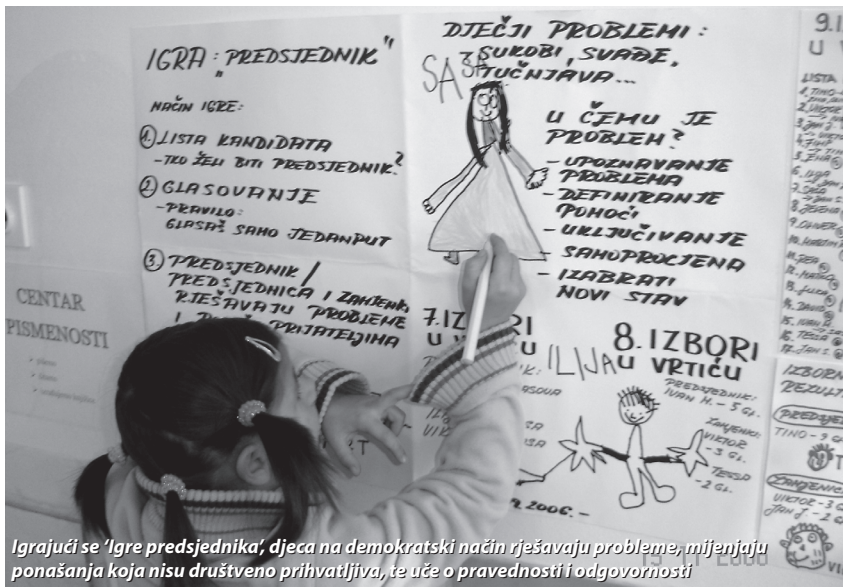 IGRA: „PREDSJEDNIK"
NAČIN IGRE:
1. LISTA KANDIDATA
- TKO ŽELI BITI PREDSJEDNIK?
2. GLASOVANJE
- PRAVILO:
GLASAŠ SAMO JEDANPUT
3. PREDSJEDNIK/
PREDSJEDNICA I ZAMJENIK
RJEŠAVAJU PROBLEME
PRIJATELJIMA
CENTAR
PISMENOSTI
DJEČJI PROBLEMI:
SUKOBI, SVAĐE,
TUČNJAVA...
SAŠA
U ČEMU JE
PROBLEM?
- UPOZNAVANJE
PROBLEMA
- DEFINIRANJE
POMOĆI
- UKLJUČIVANJE
- SAMOPROCJENA
- IZABRATI
NOVI STAV
7. IZBORI
U
ILIJA
2006.-
8. IZBORI
U VRTIĆU
PREDSJEDNIK:
IVAN M. - 5 GL.
ZAMJENIK:
VIKTOR
- 3 GL.
TESSA
- 2 GL.
9. I
U V
LISTA
IZBORN
REZULT
PREDSJE
TINO - 9 G
ZAMJENIC
VIKTOR - 3 G
JAN J. - 2 G
Igrajući se 'Igre predsjednika', djeca na demokratski način rješavaju probleme, mijenjaju
ponašanja koja nisu društveno prihvatljiva, te uče o pravednosti i odgovornosti